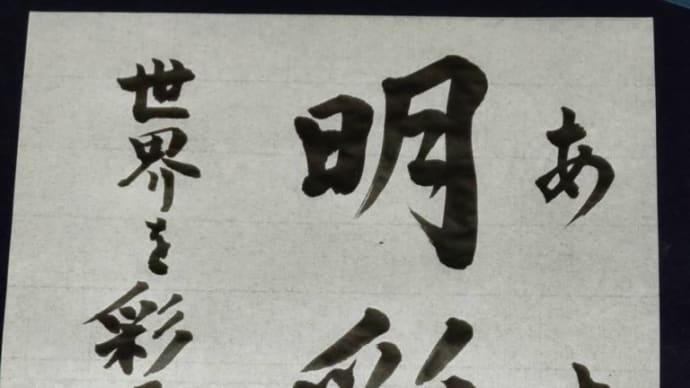 あ
明彩
世界を彩